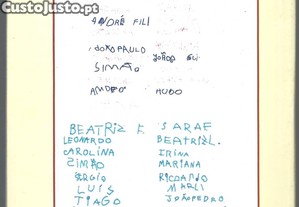 CustoJusto.pt
ANDRÉ FILI
JOÃO PAULO
SIMÃO
HUGO
BEATRIZ F. SARA F
LEONARDO BEATRIZ L.
CAROLINA IRINA
SIMÃO MARIANA
SÉRGIO RICARDO
LUÍS MARLI
TIAGO JOÃO PEDRO